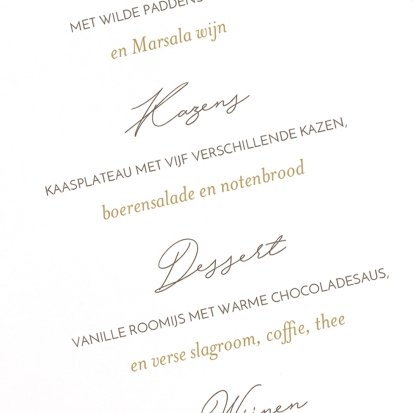 MET WILDE PADDENS
en Marsala wijn
Kazens
KAASPLATEAU MET VIJF VERSCHILLENDE KAZEN,
boerensalade en notenbrood
Dessert
VANILLE ROOMIJS MET WARME CHOCOLADESAUS,
en verse slagroom, coffie, thee
Wijnen